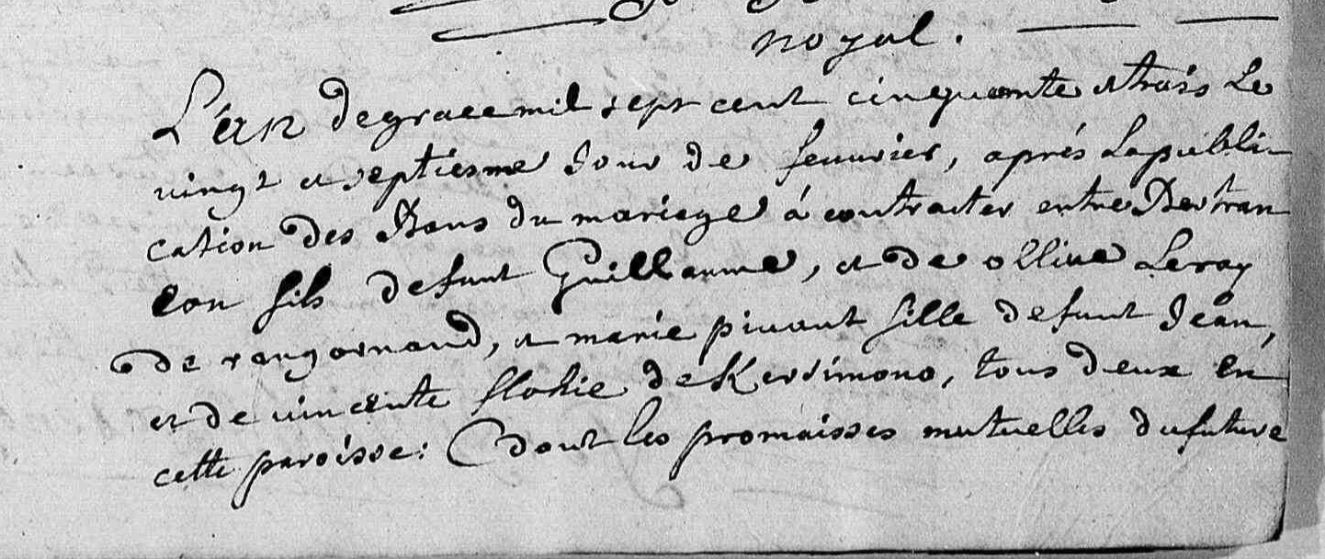 noyal.
L'an de grace mil sept cent cinquante et trois Le
vingt et septiesme Jour de feuurier, aprés La publi-
cation des Bans du mariage á contracter entre Bertran
Con fils defunt Guillaume, et de ollive Leray
de rangornaud, et marie pivaut fille defunt Jean,
et de vincente flohic de Kersimono, tous deux en
cette paroisse: dont les promaisses mutuelles du future